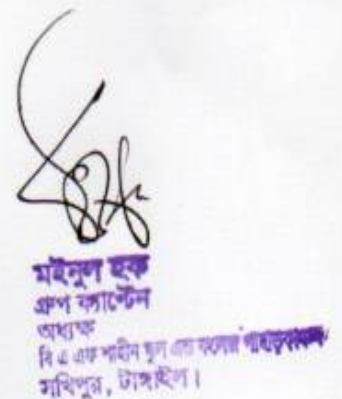 মইনুল হক
গ্রুপ ক্যাপ্টেন
অধ্যক্ষ
বি এ এফ শাহীন স্কুল এন্ড কলেজ পাহাড়কাঞ্চনপুর
সখিপুর, টাঙ্গাইল।